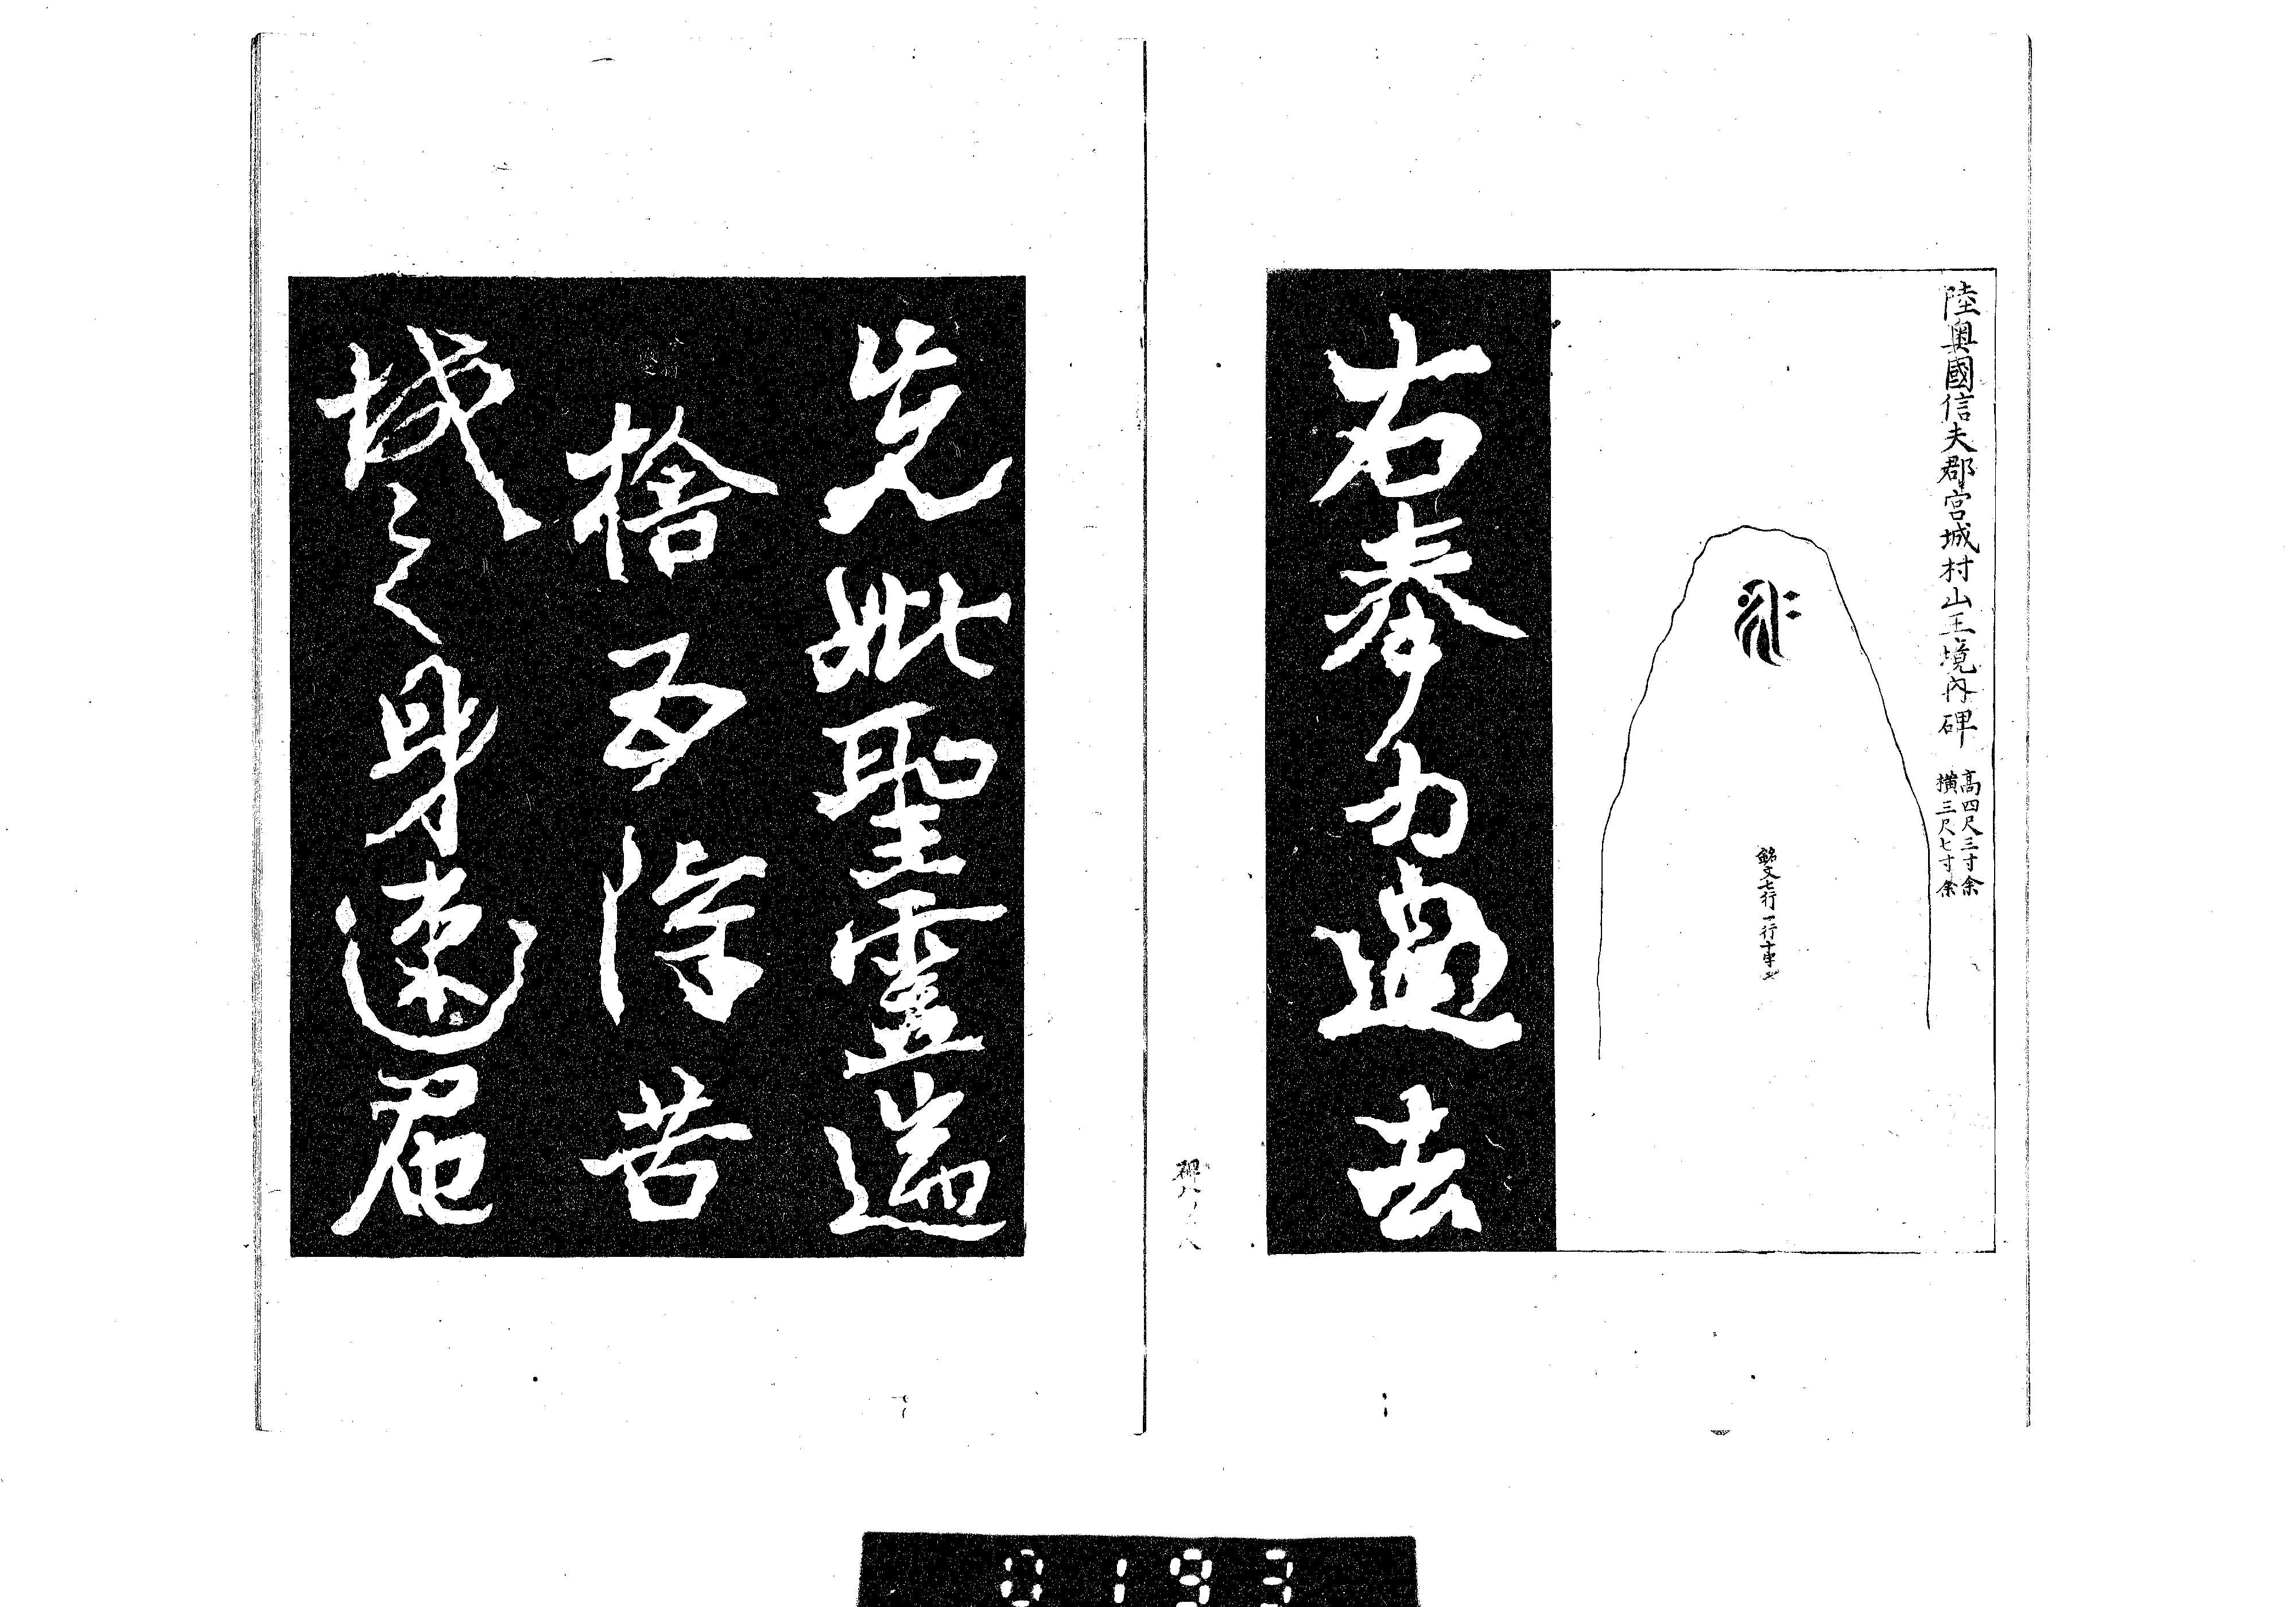 陸奥國信夫郡宮城村山王境内碑
高四尺三寸余
横三尺七寸余
銘文七行一行十字
右奉為過去
先妣聖霊端
捨五陰苦
域之身速
碑
0193